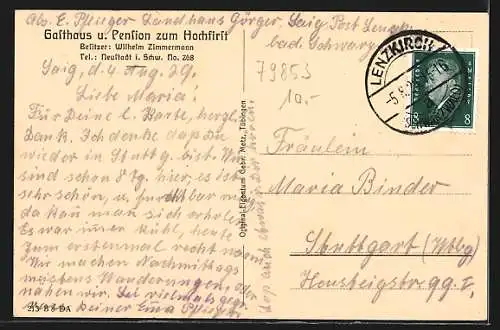 Abs. E. Pflieger Landhaus Görger, Saig Post Lenzk.
bad. Schwarzw.
Gasthaus u. Pension zum Hochfirst
Besitzer: Wilhelm Zimmermann
Tel.: Neustadt i. Schw. No. 268
79853
10.-
LENZKIRCH
(SCHWARZWALD)
8 8
Saig, d. 4. Aug. 29.
Liebe Maria!
Für Deine l. Karte, herzl.
Dank. Ich denke daß Du
wieder in Stuttg. bist. Wir
sind schon 8 Tg. hier, es ist
sehr schön, u. furchtbar
da kann man sich erholen.
Es war immer kühl, heute
zum erstenmal recht warm
Wir machen Nachmittags
meistens Wanderungen,
Sei vielmals gegr.
Deiner Emma Pflieger
Original-Eigentum Gebr. Metz, Tübingen
Fräulein
Maria Binder
Stuttgart (Wttbg)
Hausteigstr. 99 I.
213 B 8 DA